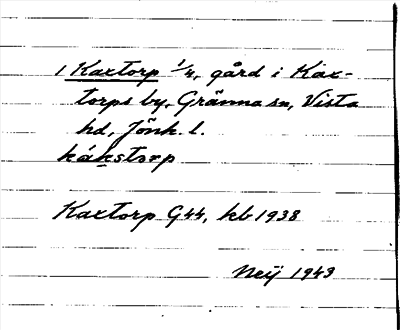 1 Kaxtorp 1/4, gård i Kax-
torps by, Gränna sn, Vista
hd, Jönk. l.
kákstorp
Kaxtorp G44, kb 1938
1943